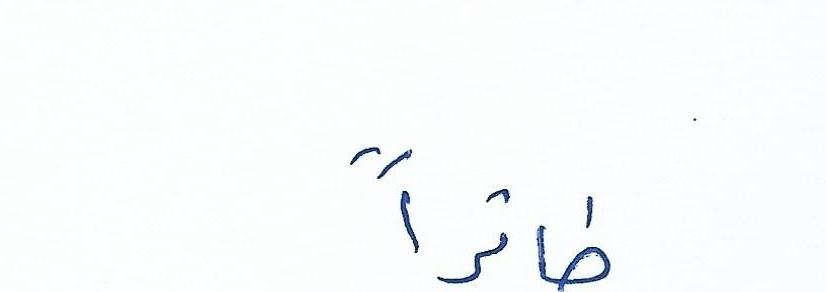 طائراً